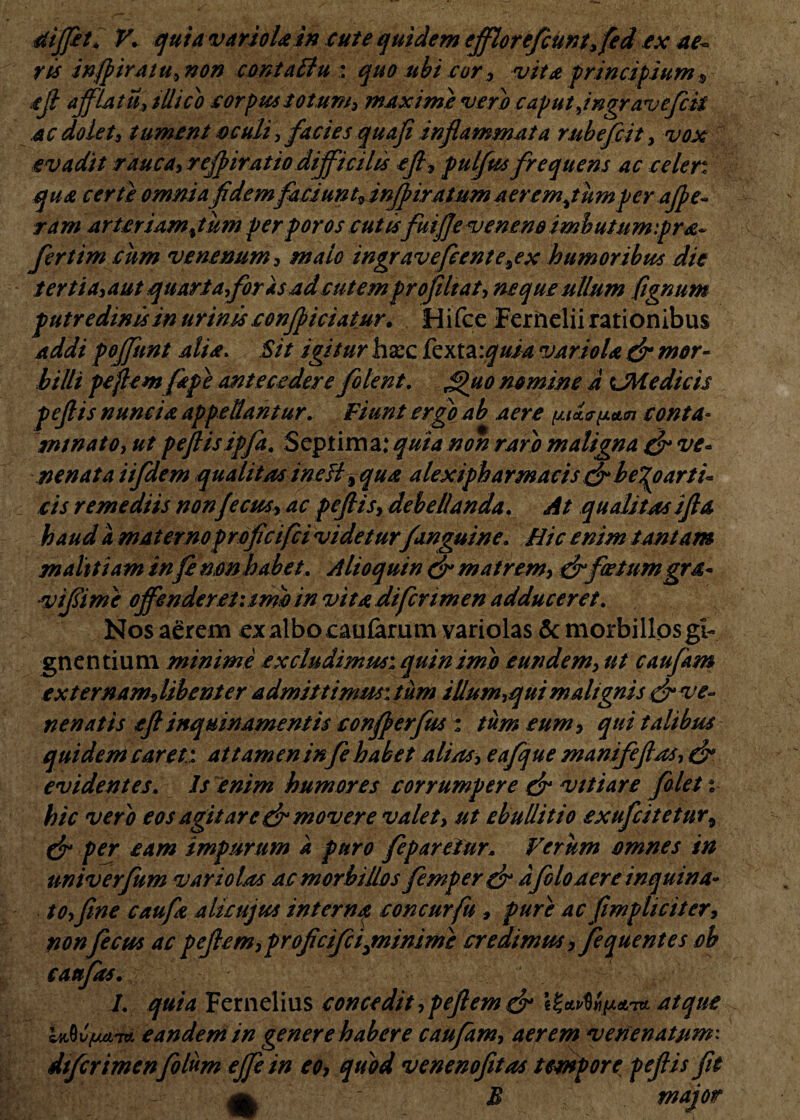 diſſet. V. quia variolæ in cute quidem effloreſcunt, ſed ex ae-
ris inſpiratu, non contactu : quo ubi cor, vitæ principium,
eſt afflatū, illico corpus totum, maxime vero caput, ingraveſcit
ac dolet, tument oculi, facies quaſi inflammata rubeſcit, vox
evadit rauca, reſpiratio difficilis eſt, pulſus frequens ac celer:
quæ certè omnia fidem faciunt, inſpiratum aerem, tùm per aſpe-
ram arteriam, tùm per poros cutis fuiſſe veneno imbutum: præ-
ſertim cùm venenum, malo ingraveſcente, ex humoribus die
tertia, aut quarta, foràs ad cutem proſiliat, neque ullum ſignum
putredinis in urinis conſpiciatur. Hiſce Fernelii rationibus
addi poſſunt aliæ. Sit igitur hæc ſexta: quia variolæ & mor-
billi peſtem ſæpè antecedere ſolent. Quo nomine à Medicis
peſtis nunciæ appellantur. Fiunt ergò ab aere μιάσμασι conta-
minato, ut peſtis ipſa. Septima: quia non rarò maligna & ve-
nenata iiſdem qualitas ineſt, quæ alexipharmacis & bezoarti-
cis remediis non ſecus, ac peſtis, debellanda. At qualitas iſta
haud à materno proficiſci videtur ſanguine. Hic enim tantam
malitiam in ſe non habet. Alioquin & matrem, & fœtum gra-
viſſimè offenderet: imò in vitæ diſcrimen adduceret.
Nos aërem ex albo cauſarum variolas & morbillos gi-
gnentium minimè excludimus: quin imò eundem, ut cauſam
externam, libenter admittimus: tùm illum, qui malignis & ve-
nenatis eſt inquinamentis conſperſus : tùm eum, qui talibus
quidem caret: attamen in ſe habet alias, eaſque manifeſtas, &
evidentes. Is enim humores corrumpere & vitiare ſolet :
hic verò eos agitare & movere valet, ut ebullitio exuſcitetur,
& per eam impurum à puro ſeparetur. Verùm omnes in
univerſum variolas ac morbillos ſemper & à ſolo aere inquina-
to, ſine cauſæ alicujus internæ concurſu, purè ac ſimpliciter,
non ſecus ac peſtem, proficiſci, minimè credimus, ſequentes ob
cauſas.
I. quia Fernelius concedit, peſtem & ἐξανθήματα atque
ἐκθύματα eandem in genere habere cauſam, aerem venenatum:
diſcrimen ſolùm eſſe in eo, quòd venenoſitas tempore peſtis ſit
B major